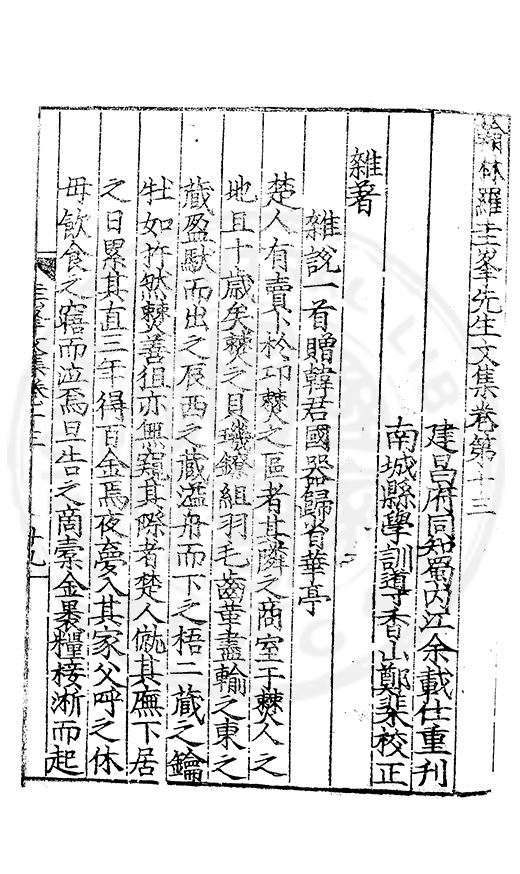 翰林羅圭峯先生文集卷第十三
建昌府同知蜀內江余載仕重刊
南城縣學訓導香山鄭棐校正
雜著
雜說一首贈韓君國器歸省華亭
楚人有賣卜於邛僰之區者其隣之商室于僰人之
地且十歲矣僰之貝璣鐐組羽毛齒革盡輸之東之
藏盈馱而出之辰西之藏溢舟而下之梧二藏之鑰
牡如拆然僰善狙亦無窺其隙者楚人僦其廡下居
之日累其直三年得百金焉夜夢入其家父呼之休
毋飲食之寤而泣焉旦告之商索金褁糧接淅而起
圭峯文集卷十三